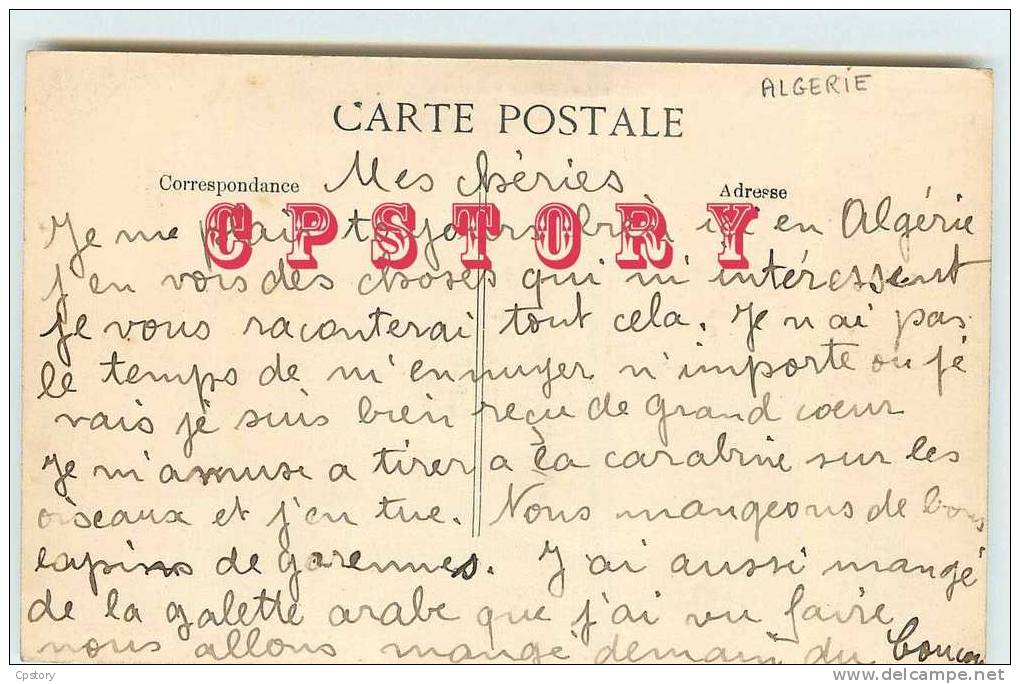 ALGERIE
CARTE POSTALE
Correspondance Mes chéries Adresse
CPSTORY
Je me plais toujours ici en Algérie
j'en vois des choses qui m'intéressent
je vous raconterai tout cela. Je n'ai pas
le temps de m'ennuyer n'importe ou je
vais je suis bien reçu de grand cœur
Je m'amuse a tirer a la carabine sur les
oiseaux et j'en tue. Nous mangeons de bons
lapins de garennes. J'ai aussi mangé
de la galette arabe que j'ai vu faire
nous allons mangé demain du
Cpstory
delcampe.net